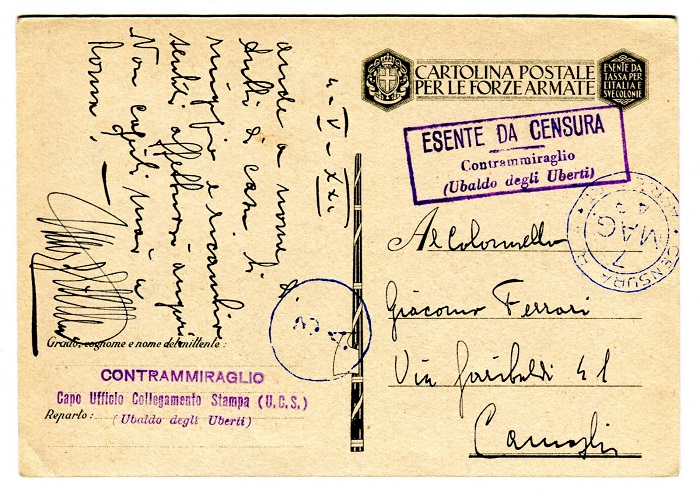 CARTOLINA POSTALE
PER LE FORZE ARMATE
ESENTE DA
TASSA PER
L'ITALIA E
SVE COLONIE
ESENTE DA CENSURA
Contrammiraglio
(Ubaldo degli Uberti)
CENSURA
7
MAG.
43
Al Colonnello
Giacomo Ferrari
Via Garibaldi 41
Camogli
4-V-XXI
anche a nome di
tutti di casa ti
ringrazio e ricambio
sentiti affettuosi auguri
Non capiti mai a
Roma?
Grado, cognome e nome del mittente:
CONTRAMMIRAGLIO
Capo Ufficio Collegamento Stampa (U.C.S.)
Reparto:
(Ubaldo degli Uberti)